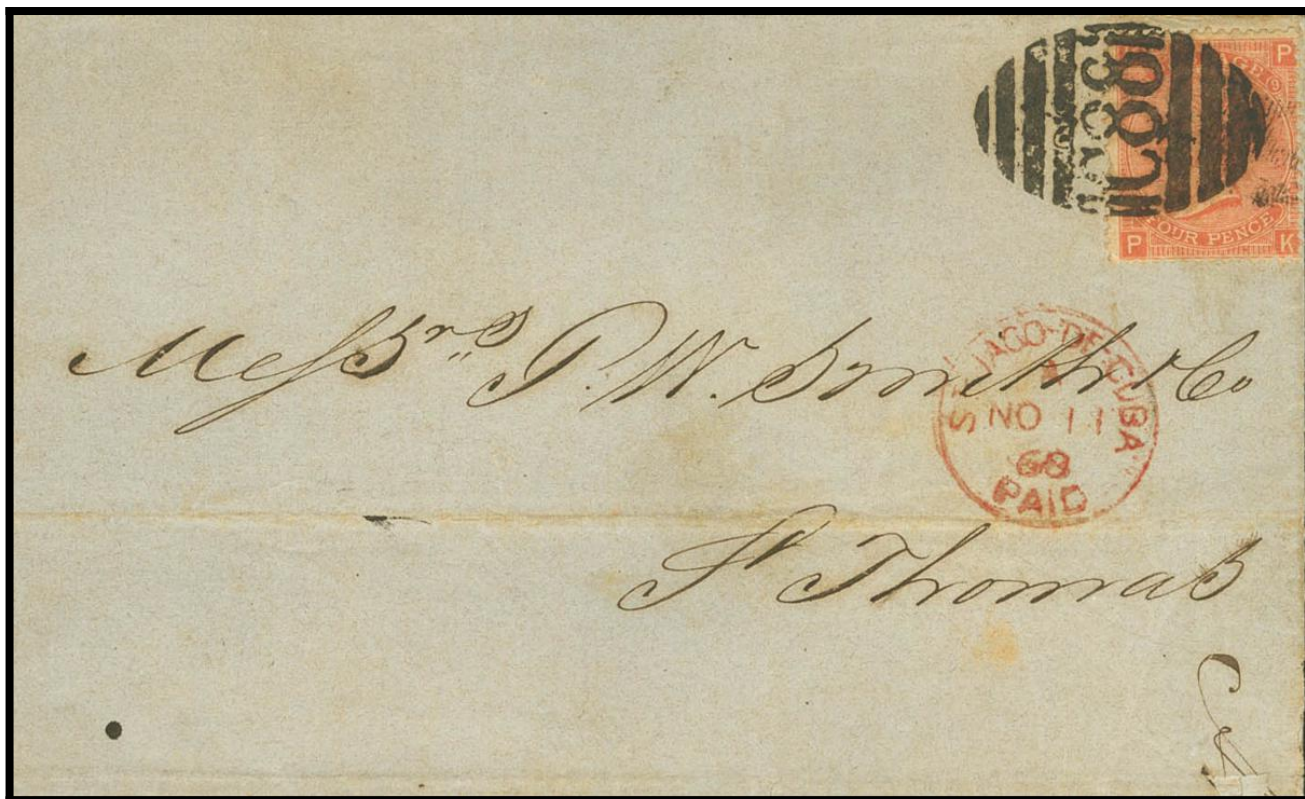 C88
P
9
FOUR PENCE
P K
Messrs P. W. Smith & Co
ST. JAGO-DE-CUBA
A
NO 11
68
PAID
St Thomas